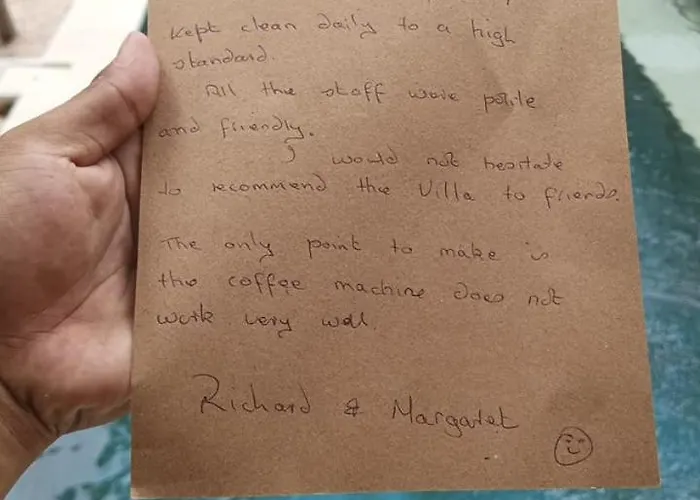 kept clean daily to a high
standard.
All the staff were polite
and friendly.
I would not hesitate
to recommend the Villa to friends.
The only point to make is
the coffee machine does not
work very well.
Richard & Margaret